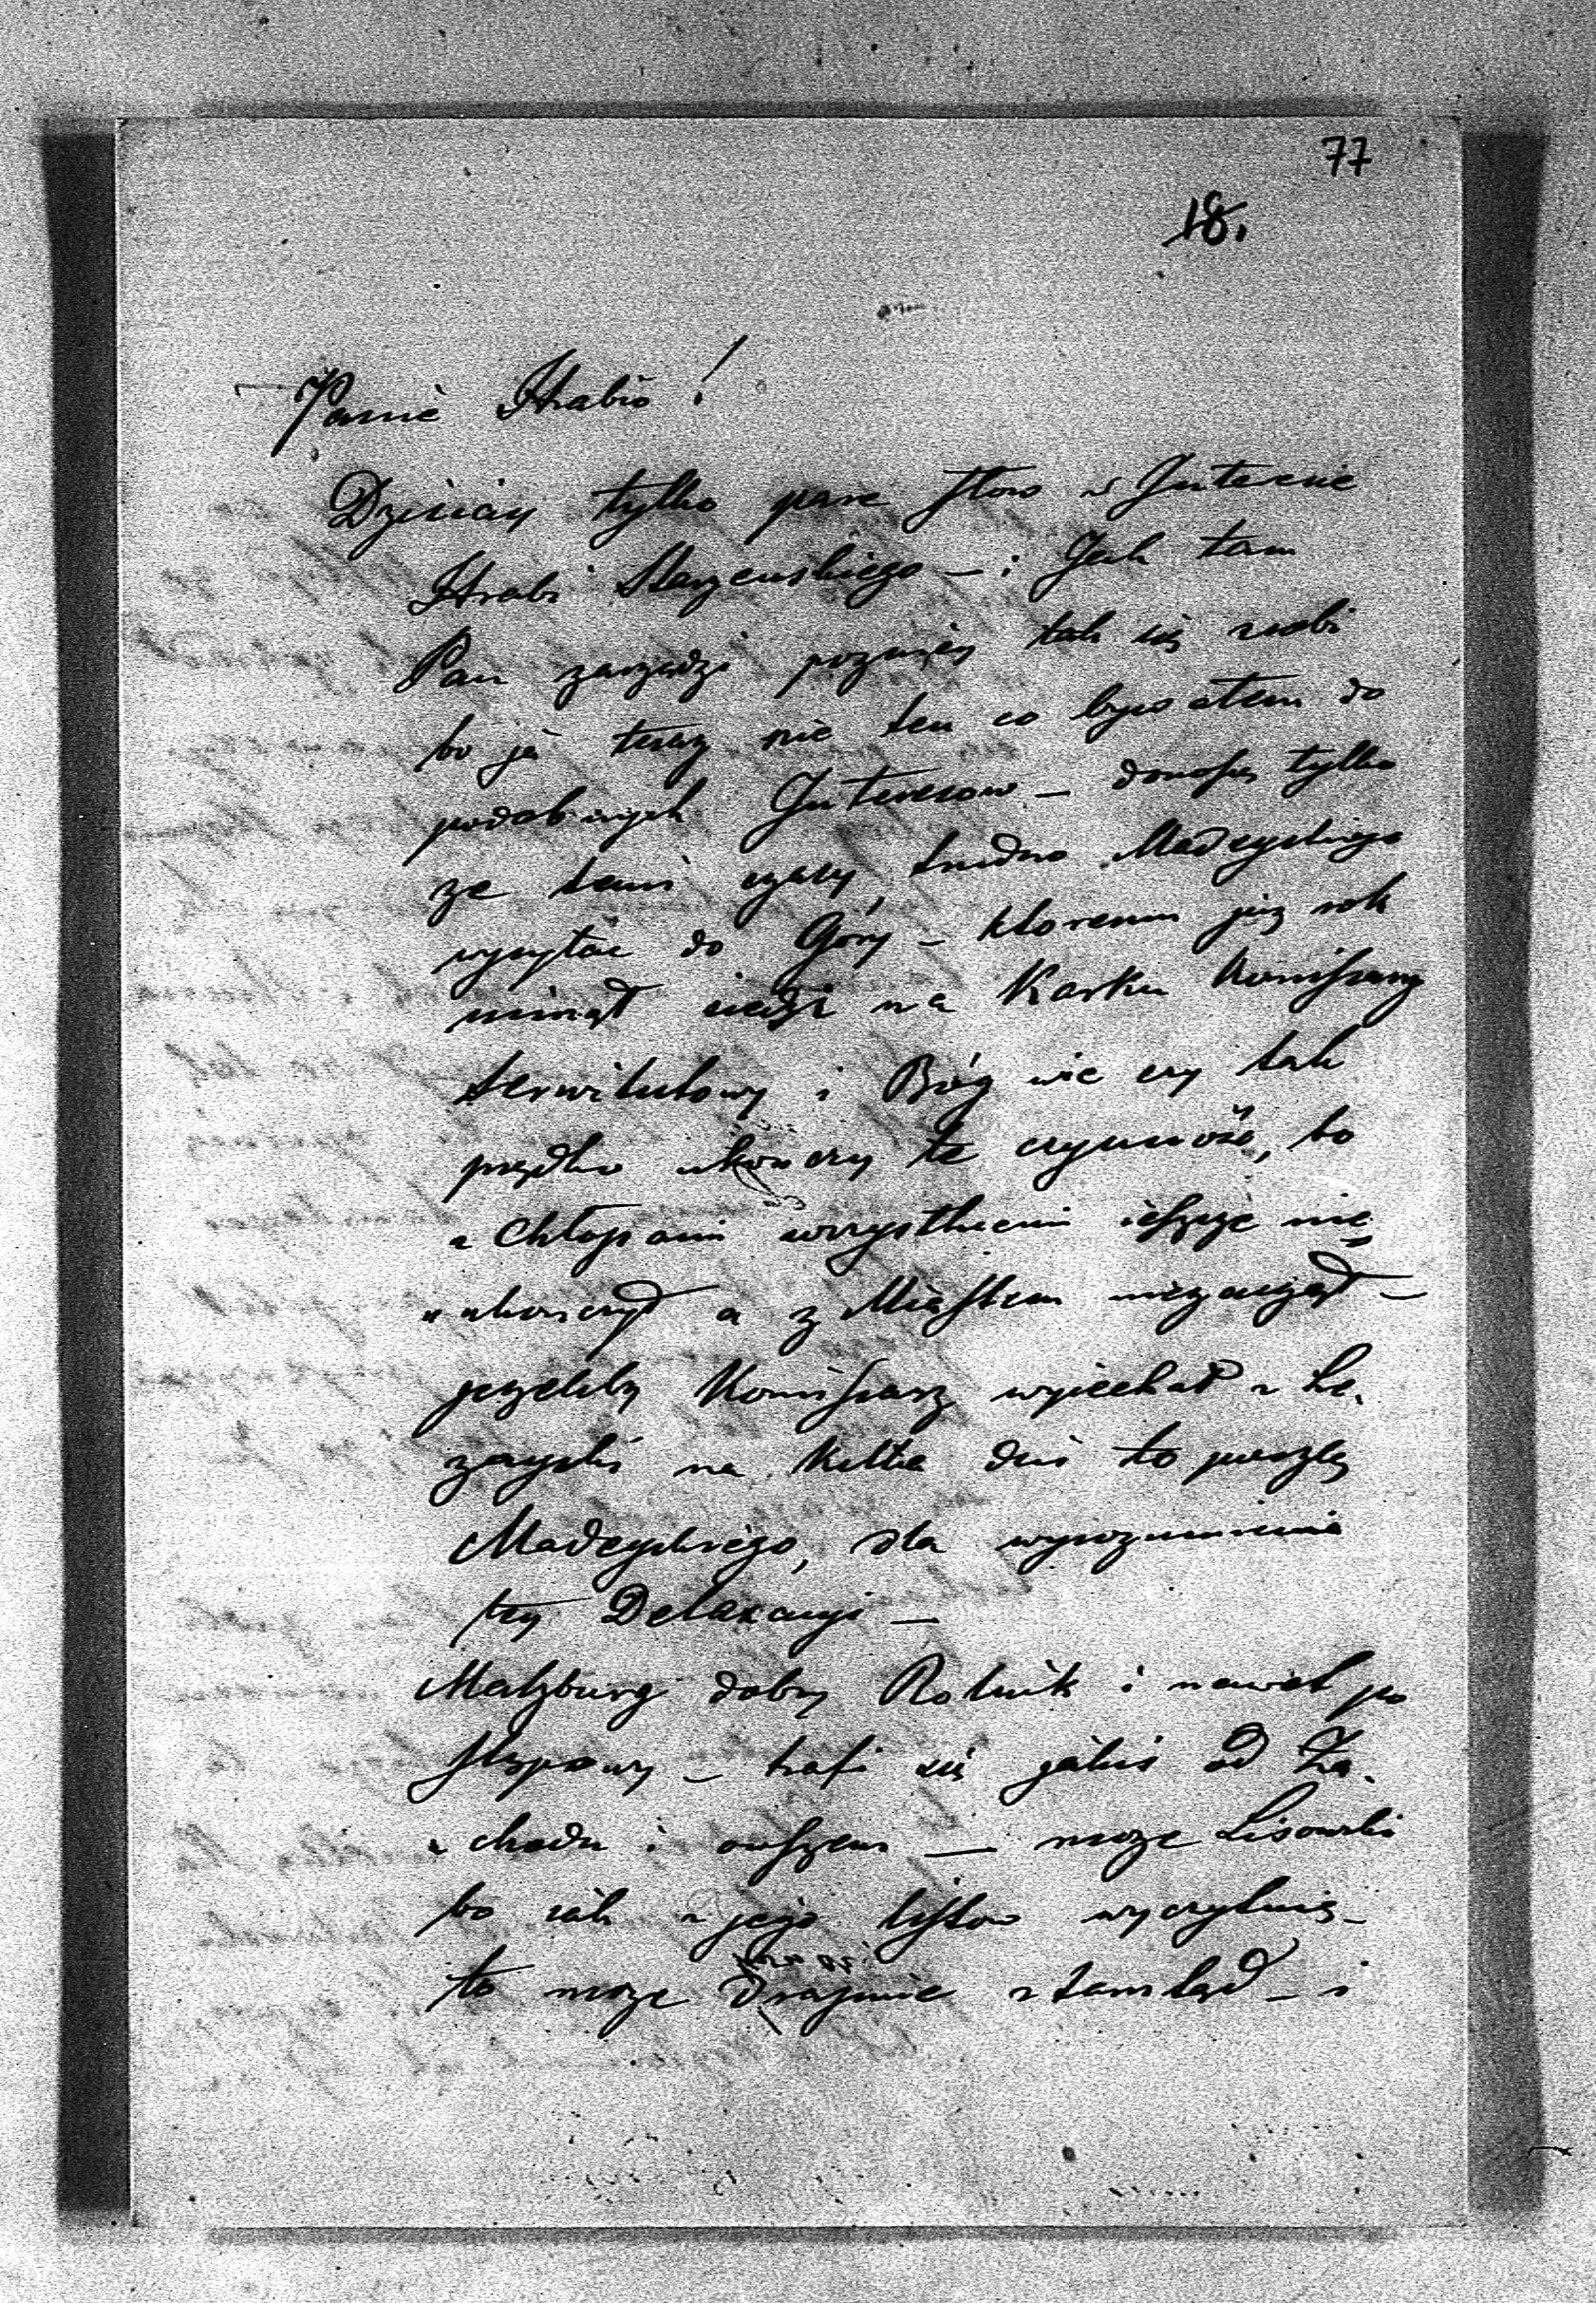 77
18.
Panie Hrabio!
Dzisiay tylko pare słow w Interesie
Hrabi Starzenskiego —: Jak tam
Pan zarządzi pozniey tak się zrobi
bo ja teraz nie ten co bywałem do
podobnych Interesow — donoszę tylko
ze temi czasy trudno Madeyskiego
wysyłac do Góry — ktoremu juz rok
minął siedzi na Karku Komissarz
Serwitutowy i Bóg wie czy tak
prędko ukonczy te czynnosć, bo
z Chłopami wszystkiemi ieszcze nie
ukonczył a z Miastem niezaczął —
jezeliby Komissarz wyjechał z
na kilka dni to poszlę
Madeyskiego, dla wyrozumienia
tey Detaxacyi —
Malzburg dobry Rolnik i nawet po
stepowy — trafi się jakis od Za-
chodu i owszem — moze Lisowski
bo iak z jego listow wyczytuię —
to moze Drajmie ztamtąd — i